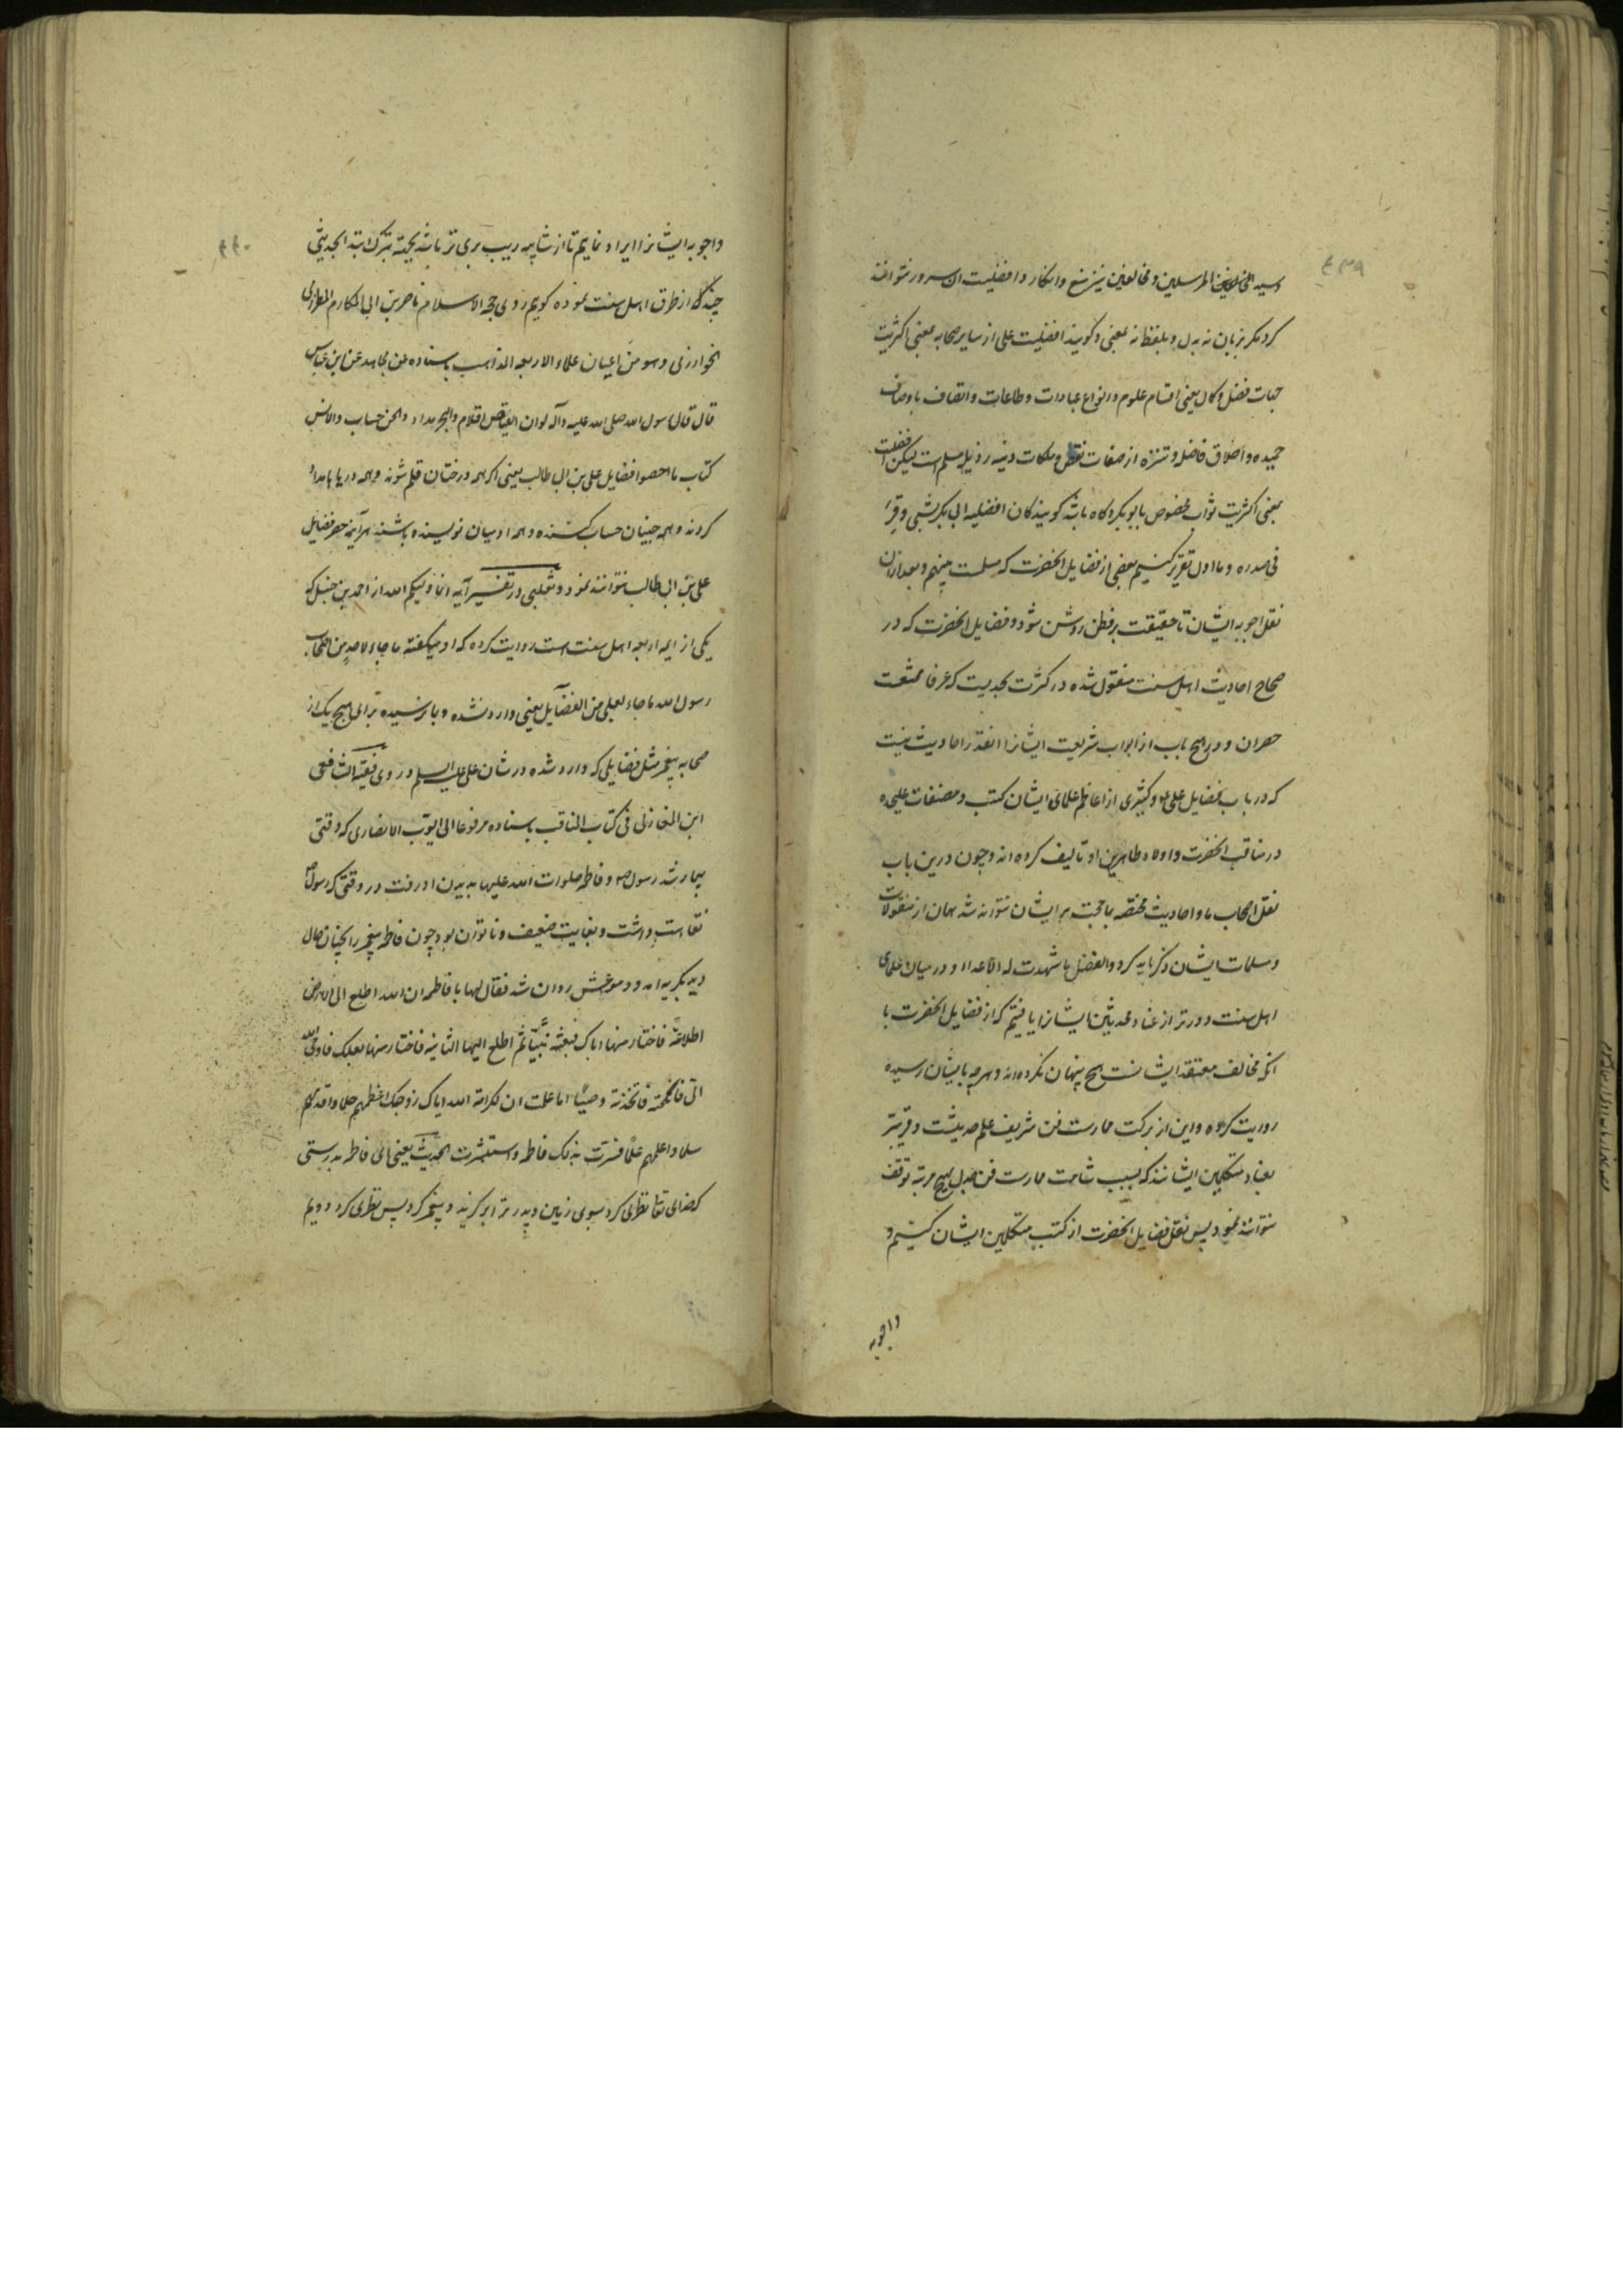 ۴۳۹
وسید المرسلین و مخالفین نیز منع و انکار در افضلیت ان سرور نتوانند
کرد مکر بزبان نه بدل و بلفظ نه بمعنی و کویند افضلیت علی از سایر صحابه بمعنی اکثریت
جهات فضل و کمال یعنی اقسام علوم و انواع عبادات و طاعات و اتصاف باوصاف
حمیده و اخلاق فاضل و تنزه از صفات نقص و ملکات دنیه رذیل مسلم است لیکن افضلیت
بمعنی اکثریت ثواب مخصوص بابو بکر و کاه باشد کویند کان افضلیه ابی بکر بشیی وقر
فی صدره و ما اول تقریر کنیم بعضی از فضایل انحضرت که مسلمست بینهم و بعد ازان
نقل اجوبه ایشان تا حقیقت بر فطن روشن شود و فضایل انحضرت که در
صحاح احادیث اهل سنت منقول شده در کثرت بحدیست که عرفا ممتنعست
حصران و در هیچ باب از ابواب شریعت ایشانرا انقدر احادیث نیست
که در باب فضایل علی و کثیری از اعاظم علمای ایشان کتب و مصنفات علیحده
در مناقب انحضرت و اولاد طاهرین او تالیف کرده اند و چون درین باب
نقل اصحاب ما و احادیث مختصه بما حجت بر ایشان نتواند شد همان از منقولات
و مسلمات ایشان ذکر باید کرد و الفضل ما شهدت له الاعداء و در میان علمای
اهل سنت دورتر از عناد محدثین ایشانرا یافتیم که از فضایل انحضرت با
انکه مخالف معتقد ایشانست هیچ پنهان نکرده اند و هرچه بایشان رسیده
روایت کرده و این از برکت ممارست فن شریف علم حدیثست و قریبتر
بعناد متکلمین ایشانند که بسبب شامت ممارست فن جدل بهیچ مرتبه توقف
نتوانند نمود پس نقل فضایل انحضرت از کتب متکلمین ایشان کنیم و
واجوبه
۴۴۰
واجوبه ایشانرا ایراد نمایم تا از شایبه ریب بری تر باشد بجهة تبرک ابتدا بحدیثی
چند که از طرق اهل سنت نموده کویم روی حجة الاسلام ناصر بن ابی المکارم المطرزی
الخوارزمی و هو من اعیان علماء الاربعه المذاهب باسناده عن مجاهد عن ابن عباس
قال قال رسول الله صلی الله علیه وآله لو ان الغیاض اقلام والبحر مداد والجن حساب والانس
کتاب ما احصوا فضایل علی بن ابی طالب یعنی اکر همه درختان قلم شوند و همه دریاها مداد
کردند و همه جنیان حساب کننده و همه ادمیان نویسنده باشند هرآینه حصر فضایل
علی بن ابی طالب نتوانند نمود و ثعلبی در تفسیر آیه انما ولیکم الله از احمد بن حنبل که
یکی از ایمه اربعه اهل سنت است روایت کرده که او میکفته ما جاء لاحد من اصحاب
رسول الله ما جاء لعلی من الفضایل یعنی وارد نشده و بما نرسیده برای هیچ یک از
صحابه پیغمبر مثل فضایلی که وارد شده در شان علی علیه السلم و روی فقیه الشافعی
ابن المغازلی فی کتاب المناقب باسناده مرفوعا الی ایوب الانصاری که وقتی
بیمار شد رسول ص و فاطمه صلوات الله علیها بدیدن او رفت در وقتی که رسول ص
نقاهت داشت و بغایت ضعیف و ناتوان بود چون فاطمه پیغمبر را بچنان حال
دید بکریه امد و دموعش روان شد فقال لها یا فاطمه ان الله اطلع الی الارض
اطلاعة فاختار منها اباک فبعثه نبیا ثم اطلع الیها الثانیه فاختار منها بعلک فاوحی الله
الی فانکحته فاتخذته وصیا اما علمت ان لکرامة الله ایاک زوجک اعظمهم حلما و اقدمهم
سلما و اعلمهم علما فسرت بذلک فاطمه و استبشرت الحدیث یعنی ای فاطمه بدرستی
که خدای تعا نظری کرد بسوی زمین و پدر ترا برکزید و پیغمبر کرد پس نظری کرد دویم